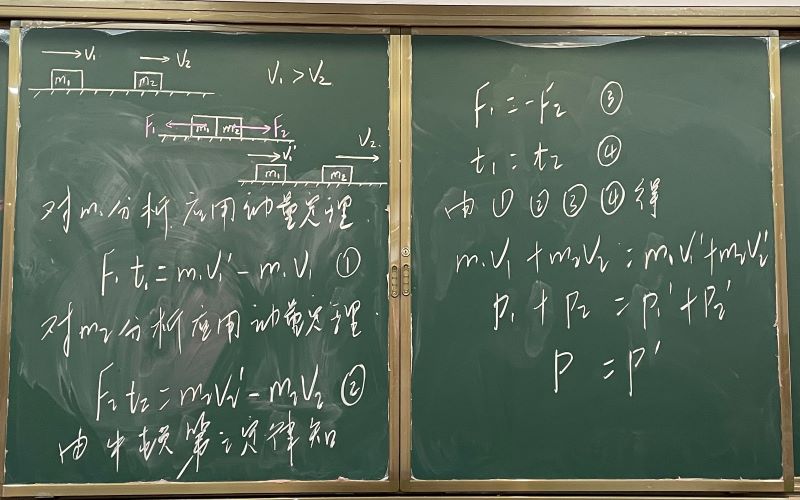 V₁ V₂
m₁ m₂ V₁ > V₂
F₁ m₁ m₂ F₂
V₁' V₂
m₁ m₂
对m₁分析应用动量定理
F₁t₁=m₁V₁'-m₁V₁ ①
对m₂分析应用动量定理
F₂t₂=m₂V₂'-m₂V₂ ②
由牛顿第三定律知
F₁=-F₂ ③
t₁=t₂ ④
由①②③④得
m₁V₁+m₂V₂=m₁V₁'+m₂V₂'
p₁+p₂=p₁'+p₂'
p=p'